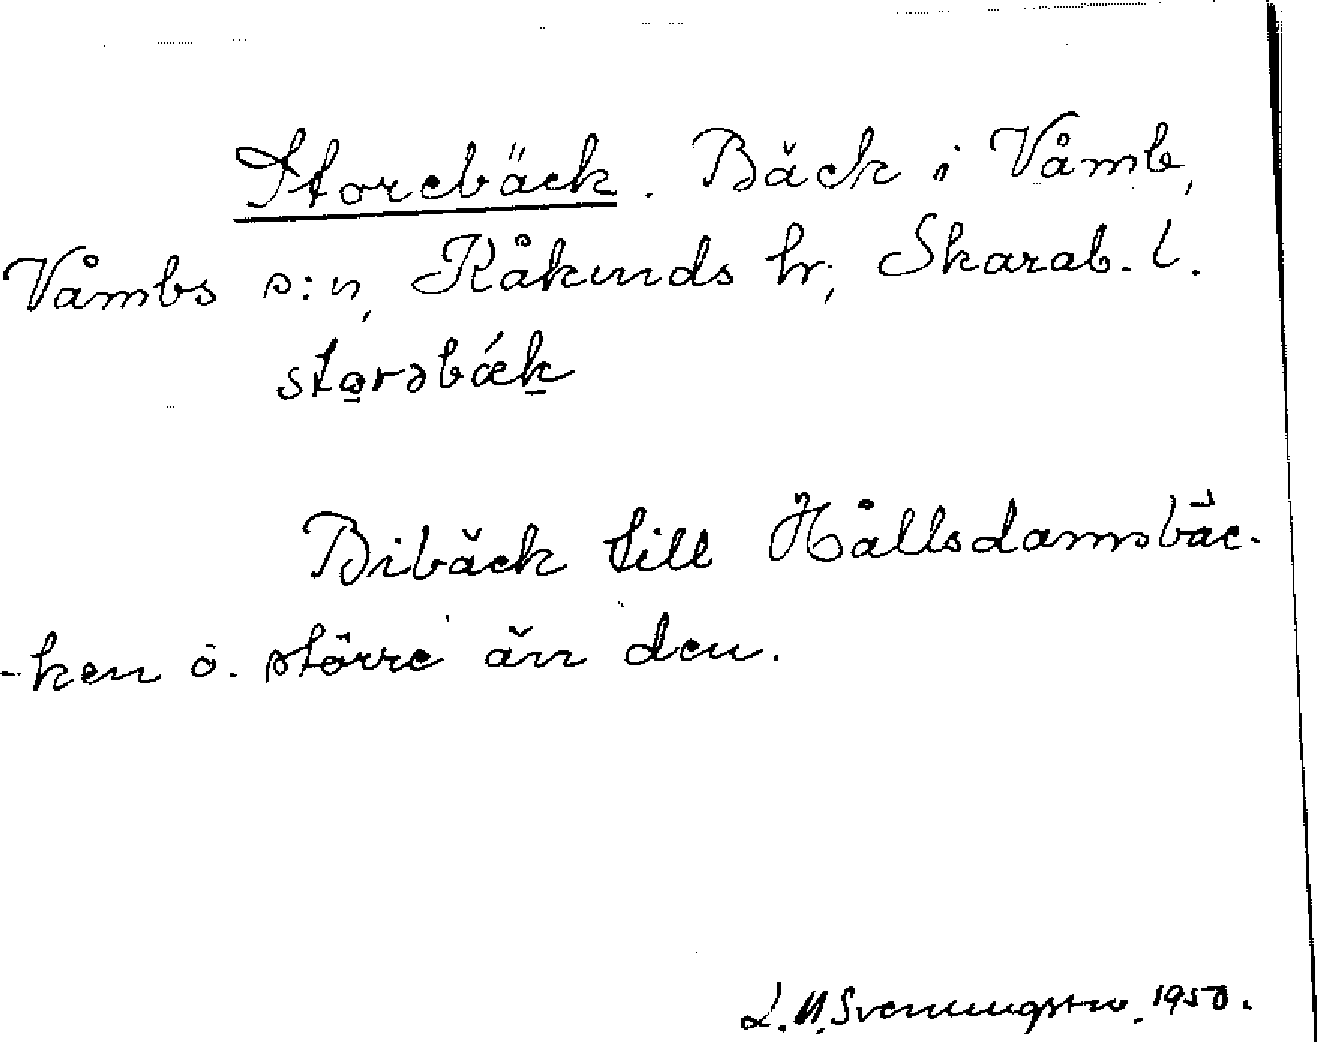 Storebäck. Bäck i Våmb,
Våmbs s:n, Kåkinds hr, Skarab. l.
storəbǽk
Bibäck till Hållsdamsbäc-
-ken o. större än den.
L. N. Svenningsson. 1950.